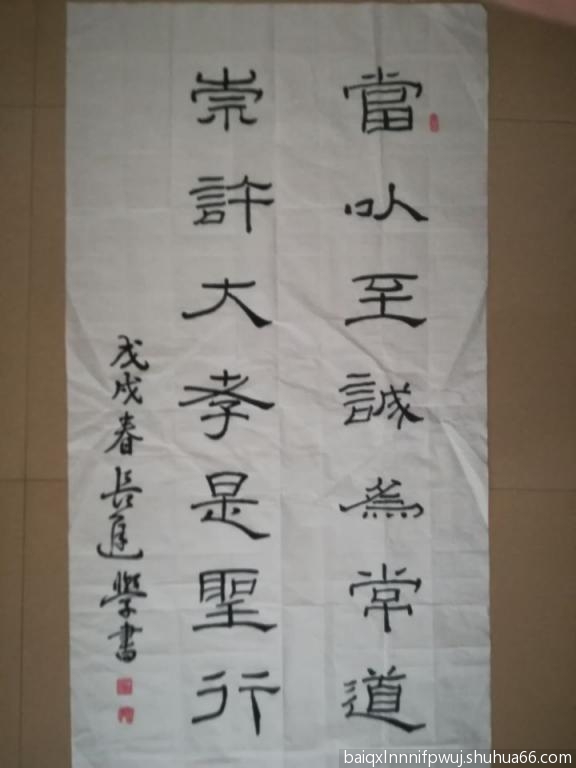 當以至誠為常道
崇許大孝是聖行
戊戌春長運學書
baiqxlnnnifpwuj.shuhua66.com